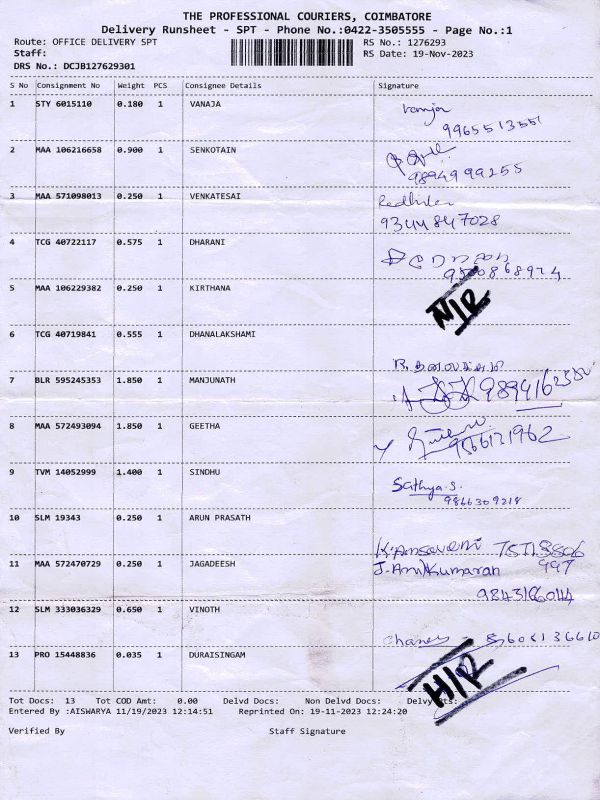 THE PROFESSIONAL COURIERS, COIMBATORE
Delivery Runsheet - SPT - Phone No.:0422-3505555 - Page No.:1
Route: OFFICE DELIVERY SPT RS No.: 1276293
Staff: RS Date: 19-Nov-2023
DRS No.: DCJB127629301
S No Consignment No Weight PCS Consignee Details Signature
1 STY 6015110 0.180 1 VANAJA
9965513551
2 MAA 106216658 0.900 1 SENKOTAIN
9894999255
3 MAA 571098013 0.250 1 VENKATESAI
9344847028
4 TCG 40722117 0.575 1 DHARANI
5 MAA 106229382 0.250 1 KIRTHANA
N/R
6 TCG 40719841 0.555 1 DHANALAKSHAMI
7 BLR 595245353 1.850 1 MANJUNATH
8 MAA 572493094 1.850 1 GEETHA
9566121962
9 TVM 14052999 1.400 1 SINDHU
Sathya.S.
9866309218
10 SLM 19343 0.250 1 ARUN PRASATH
11 MAA 572470729 0.250 1 JAGADEESH
J. Arul Kumaran 997
12 SLM 333036329 0.650 1 VINOTH
8608136610
13 PRO 15448836 0.035 1 DURAISINGAM
H/R
Tot Docs: 13 Tot COD Amt: 0.00 Delvd Docs: Non Delvd Docs: Delvy
Entered By :AISWARYA 11/19/2023 12:14:51 Reprinted On: 19-11-2023 12:24:20
Verified By Staff Signature